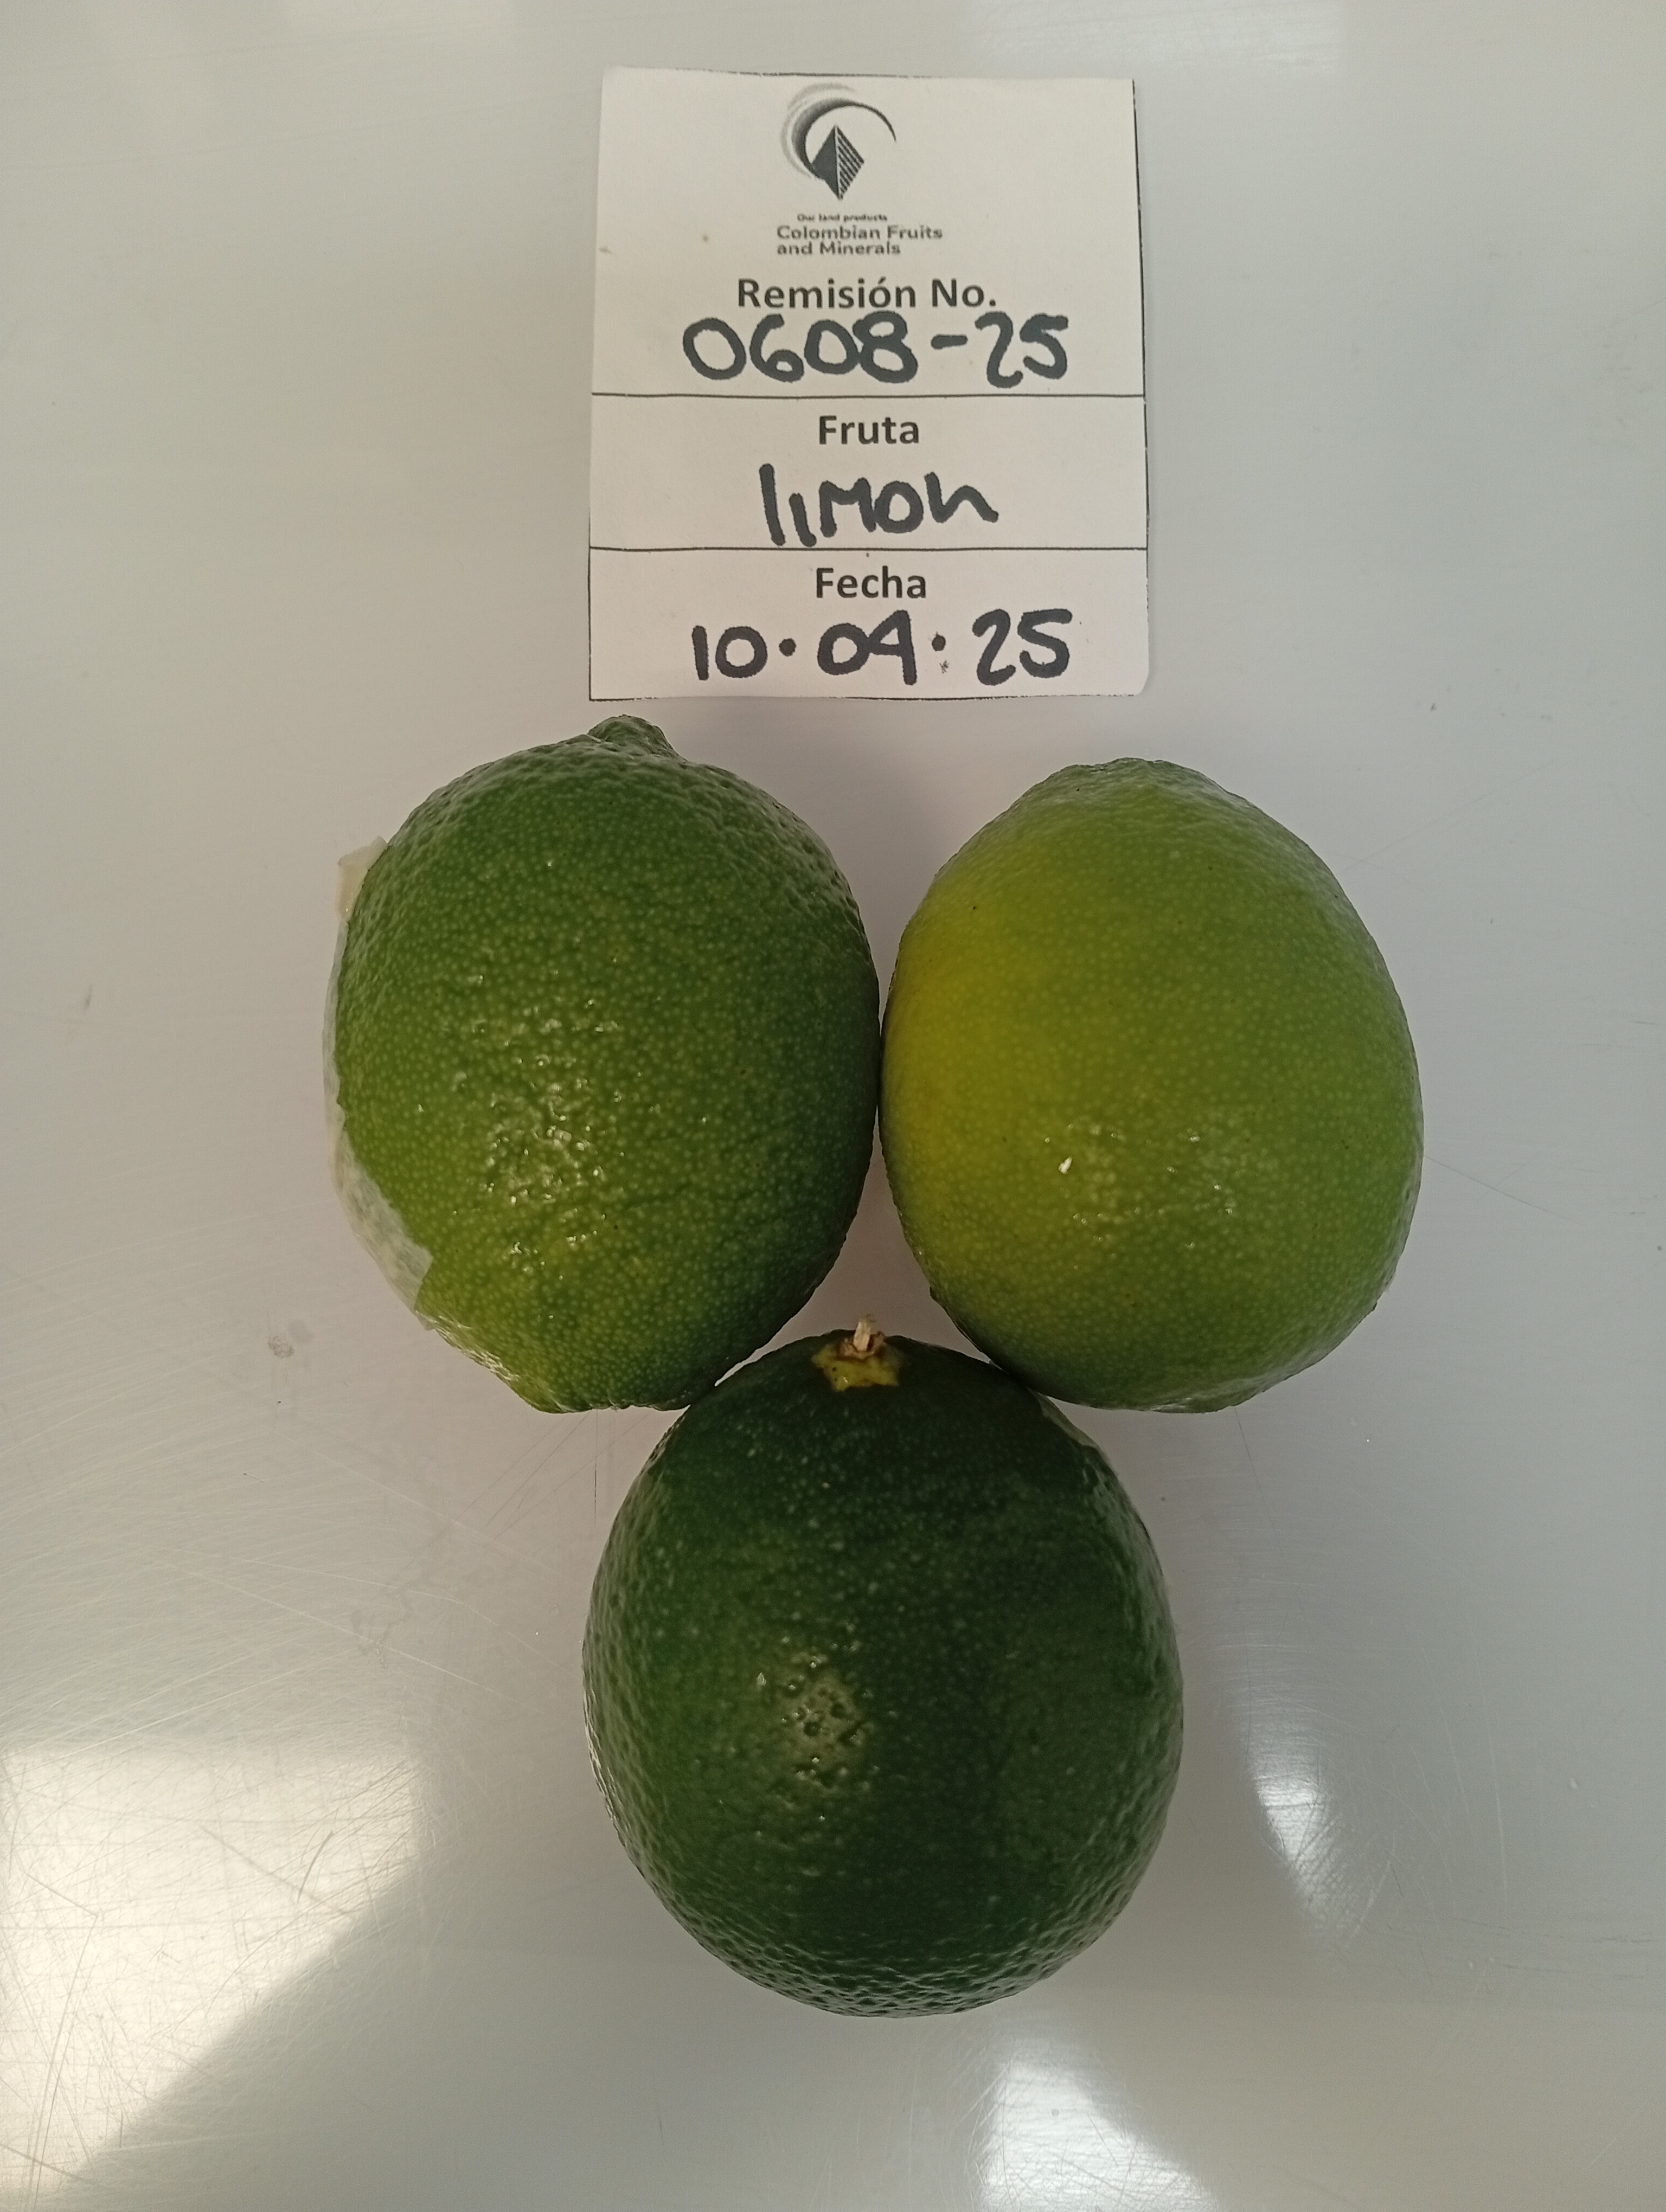 Our land products
Colombian Fruits
and Minerals
Remisión No.
0608-25
Fruta
limon
Fecha
10·04·25